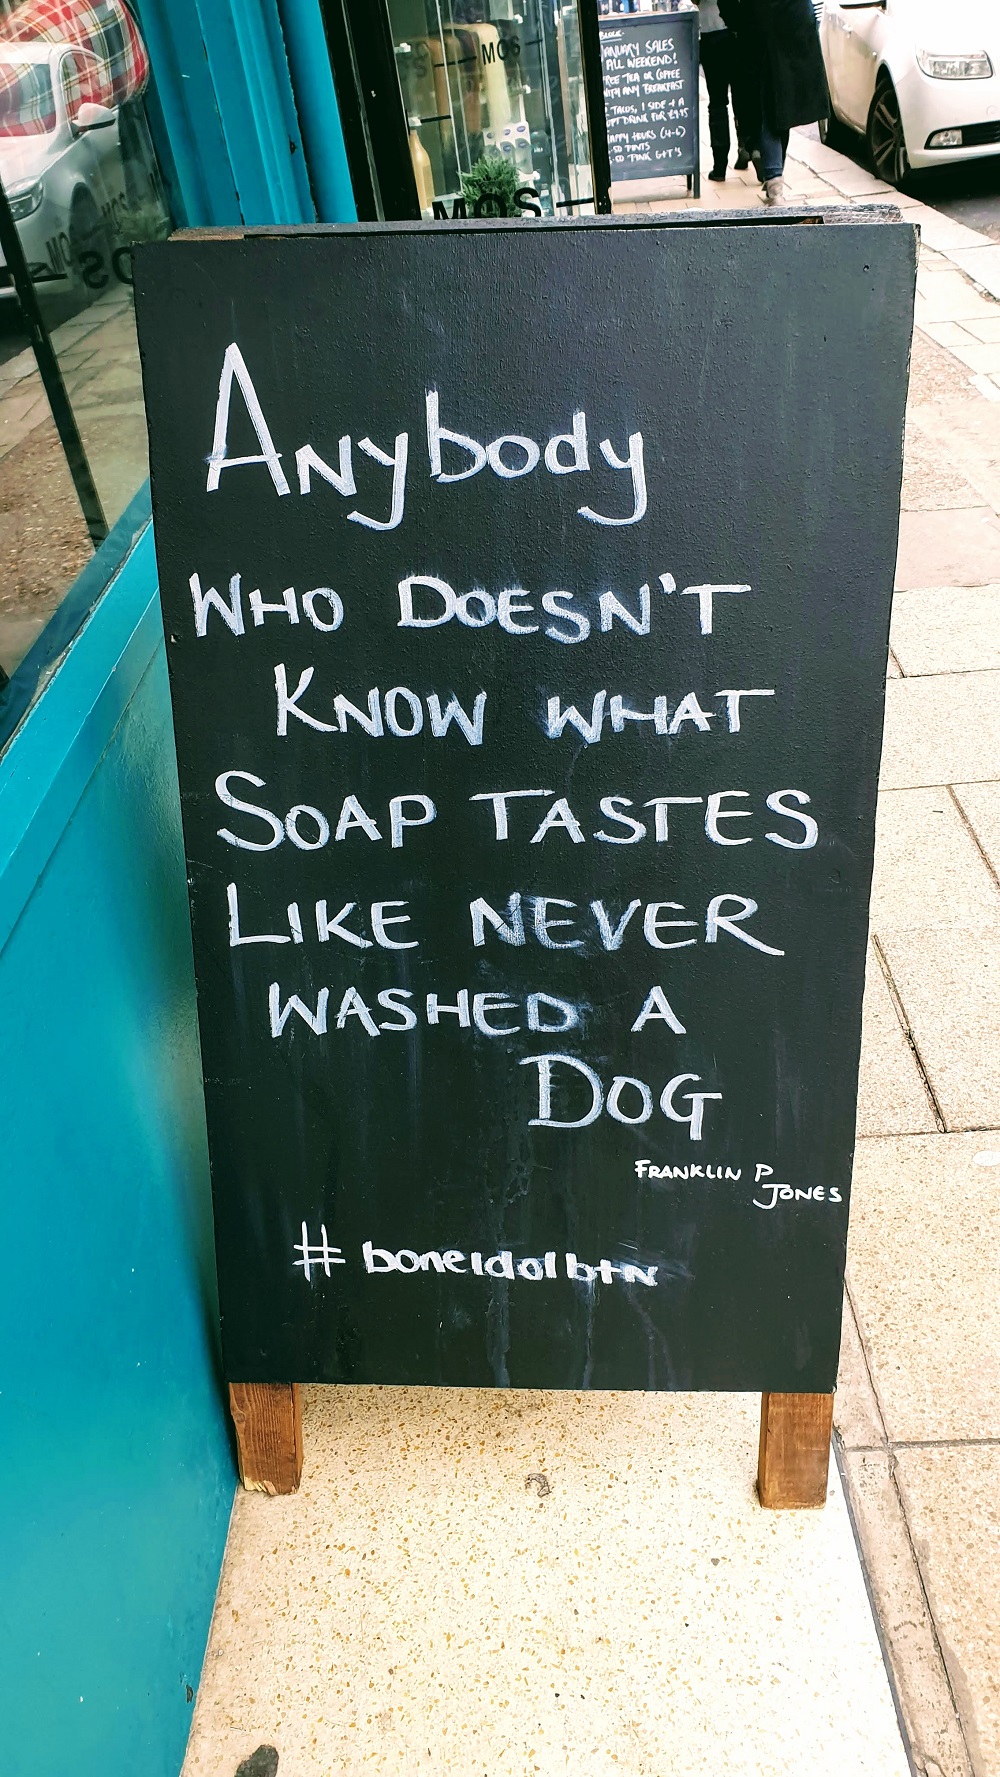 Anybody
WHO DOESN'T
KNOW WHAT
SOAP TASTES
LIKE NEVER
WASHED A
DOG
FRANKLIN P
JONES
#boneidolbtn
MOS
MOS
JANUARY SALES
ALL WEEKEND!
FREE TEA OR COFFEE
WITH ANY BREAKFAST
TACOS, 1 SIDE + A
DRINK FOR £9.95
HAPPY HOURS (4-6)
PINTS
PINK G+T'S